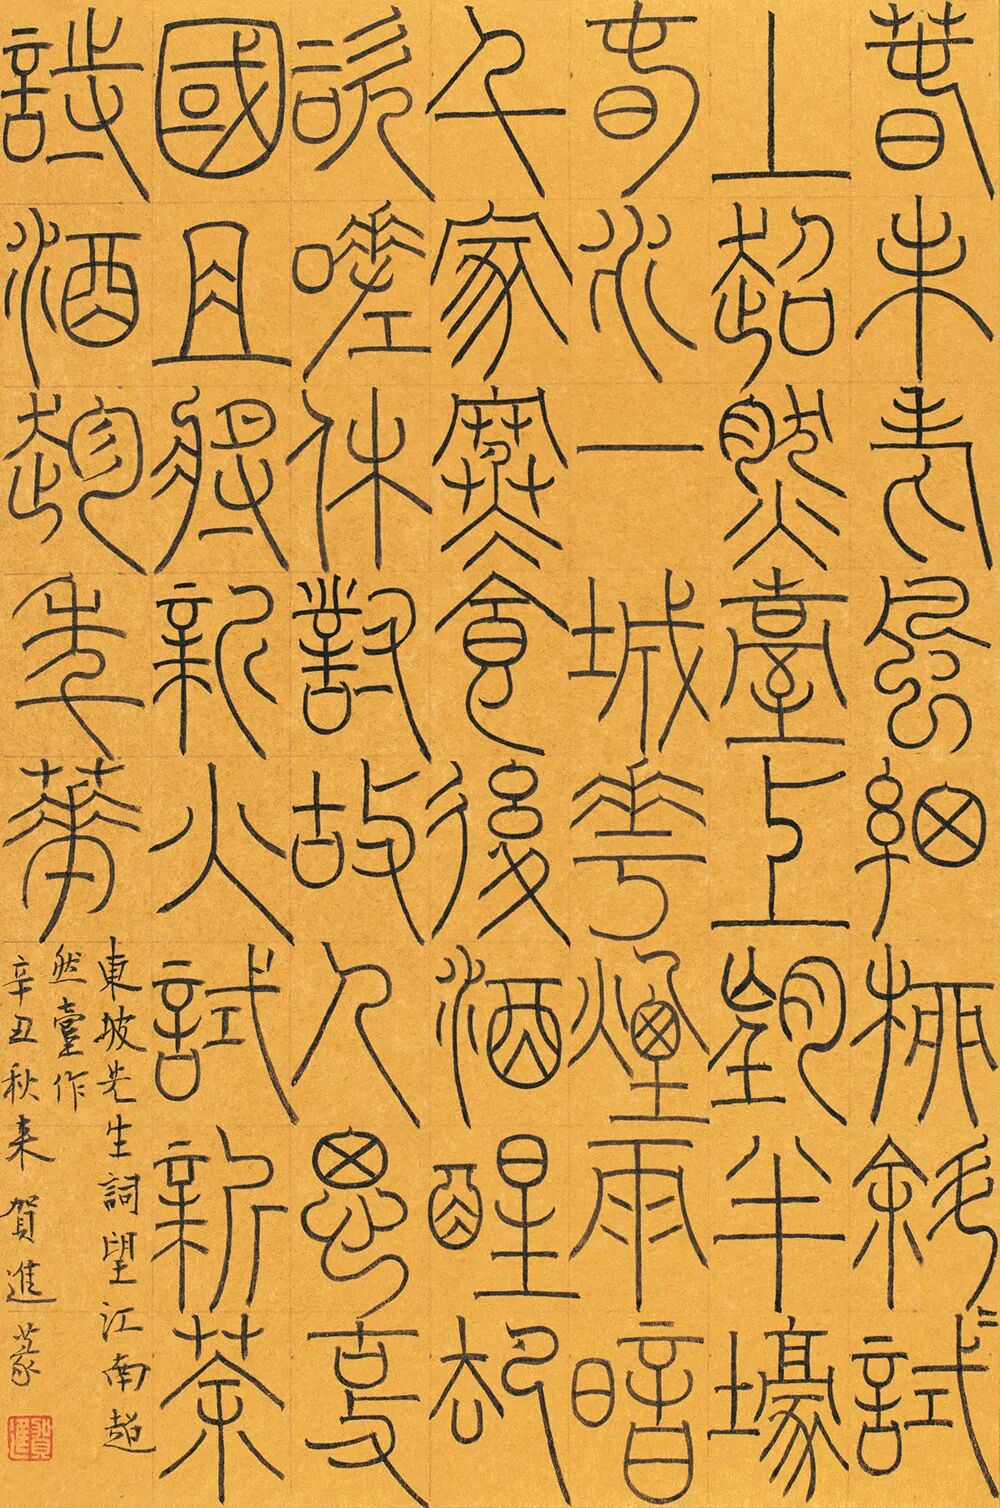 春未老風細柳斜〻試
上超然臺上望半壕
春水一城花煙雨暗
千家寒食後酒醒却
諮嗟休對故人思故
國且將新火試新茶
詩酒趁年華
東坡先生詞望江南超
然臺作
辛丑秋来賀進篆
賀進